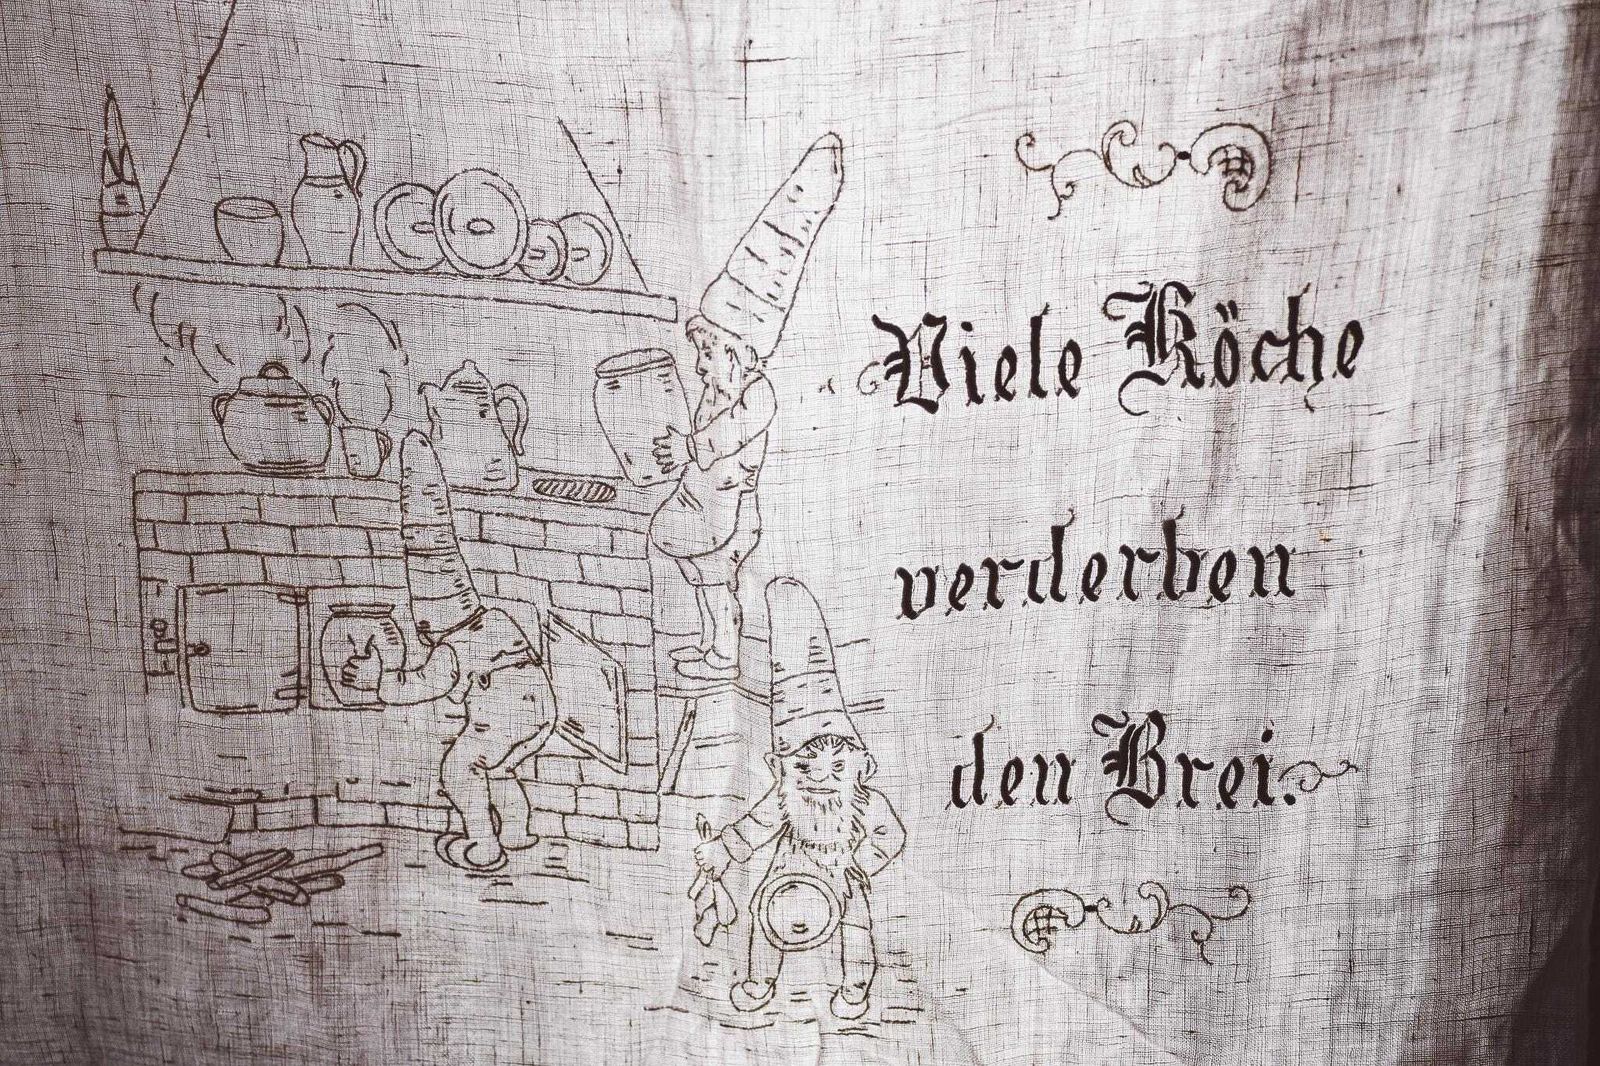 Viele Köche
verderben
den Brei.